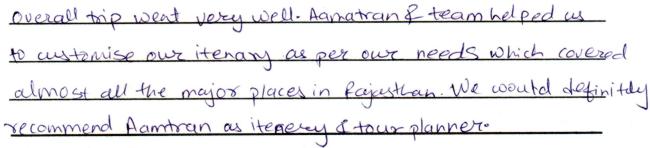 Overall trip went very well. Aamatran & team helped us
to customise our itenary as per our needs which covered
almost all the major places in Rajasthan. We would definitely
recommend Aamtran as itenery & tour planner.